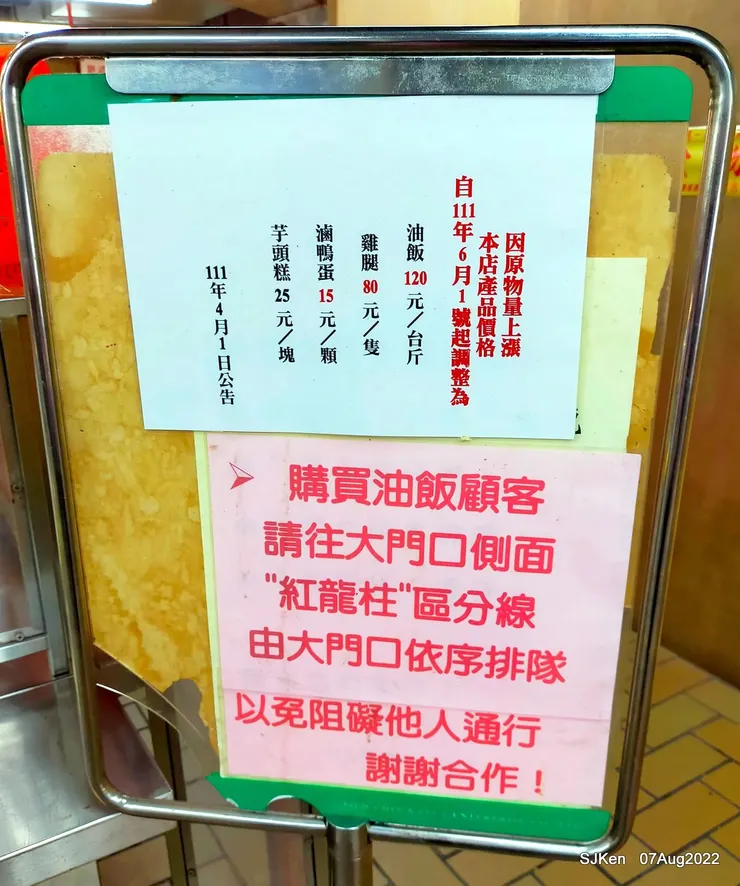 因原物量上漲
本店產品價格
自111年6月1號起調整為
油飯120元/台斤
雞腿80元/隻
滷鴨蛋15元/顆
芋頭糕25元/塊
111年4月1日公告
購買油飯顧客
請往大門口側面
"紅龍柱"區分線
由大門口依序排隊
以免阻礙他人通行
謝謝合作！
SJKen 07Aug2022